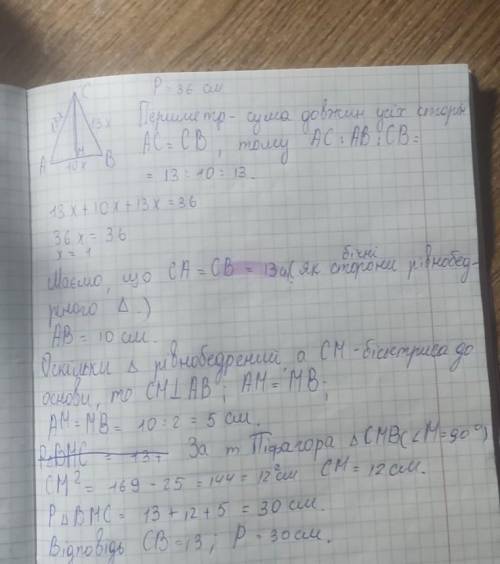 C
P = 36 см
13x 13x
A M B
10x
Периметр - сума довжин усіх сторін
AC = CB, тому AC : AB : CB =
= 13 : 10 : 13.
13x + 10x + 13x = 36
36x = 36
x = 1
Маємо, що CA = CB = 13см (як бічні сторони рівнобед-
реного Δ.)
AB = 10 см.
Оскільки Δ рівнобедрений а CM - бісектриса до
основи, то CM ⊥ AB ; AM = MB ;
AM = MB = 10 : 2 = 5 см.
PΔBMC = 13+ За т Піфагора ΔCMB (∠M = 90°)
CM² = 169 - 25 = 144 = 12² см CM = 12 см.
PΔBMC = 13 + 12 + 5 = 30 см.
Відповідь CB = 13 ; P = 30 см.